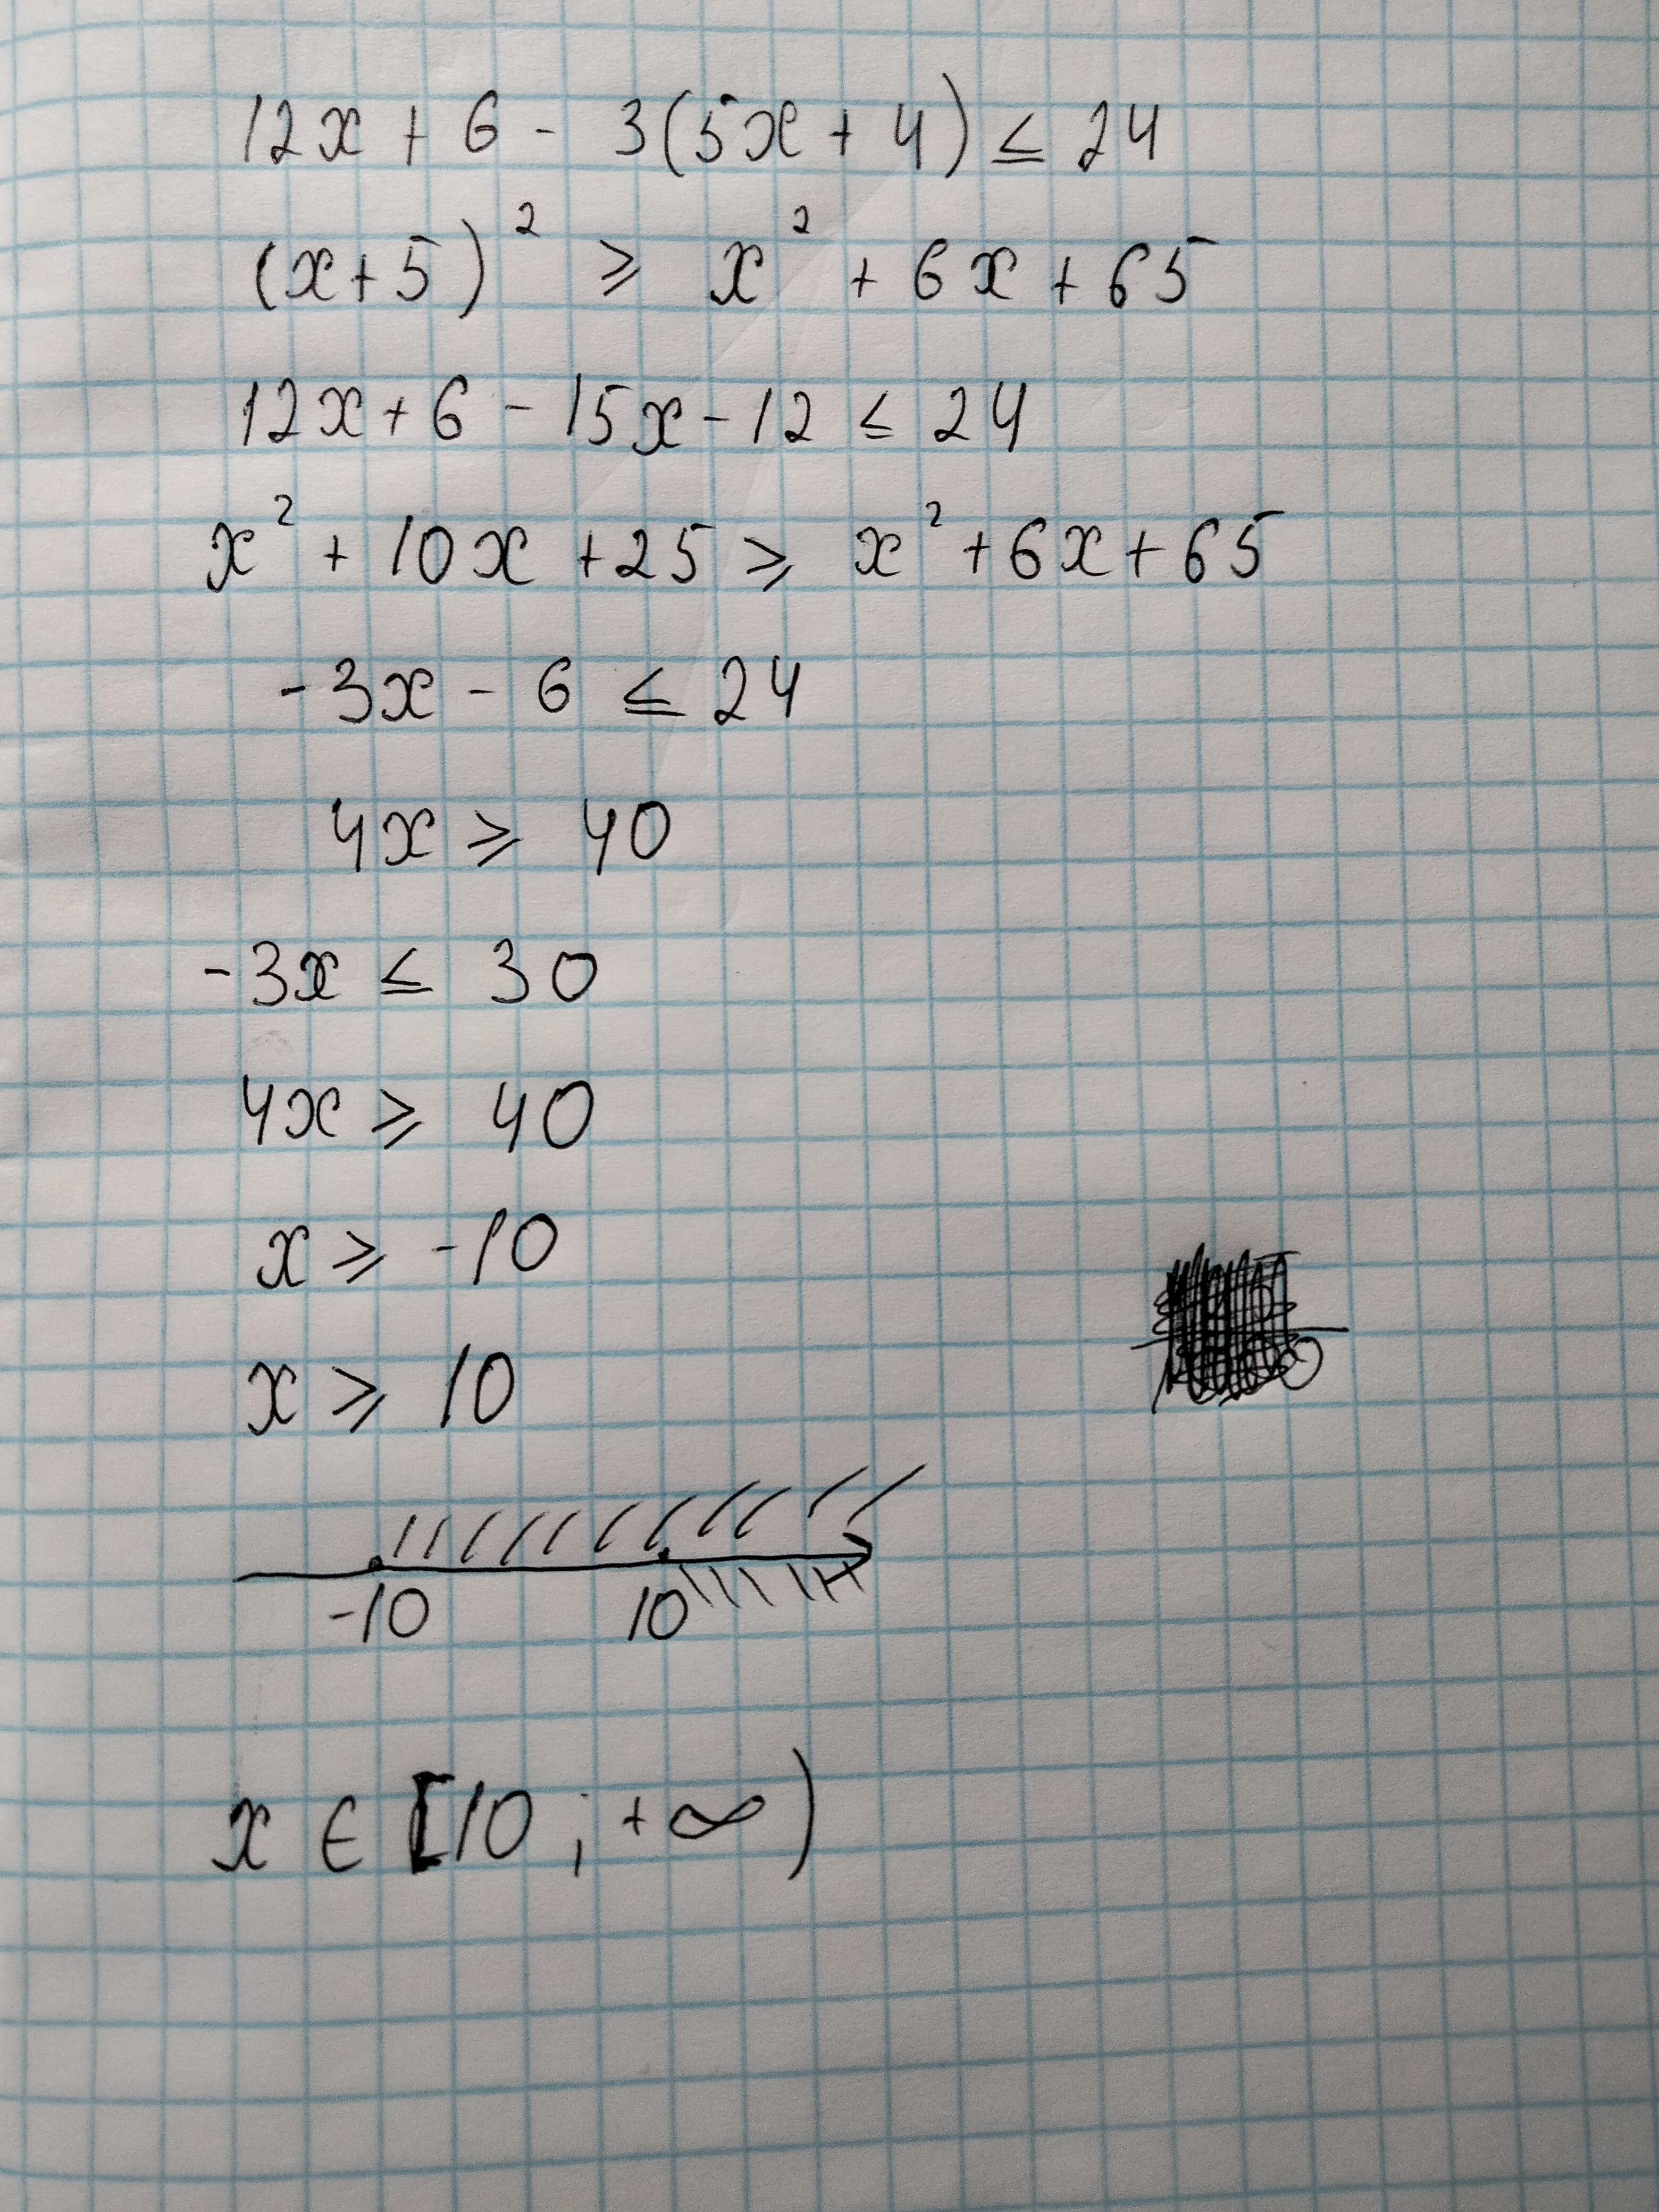 12x + 6 - 3(5x + 4) ≤ 24
(x+5)² ⩾ x² + 6x + 65
12x + 6 - 15x - 12 ≤ 24
x² + 10x + 25 ⩾ x² + 6x + 65
-3x - 6 ≤ 24
4x ⩾ 40
-3x ≤ 30
4x ⩾ 40
x ⩾ -10
x ⩾ 10
-10 10
x ∈ [10 ; +∞)